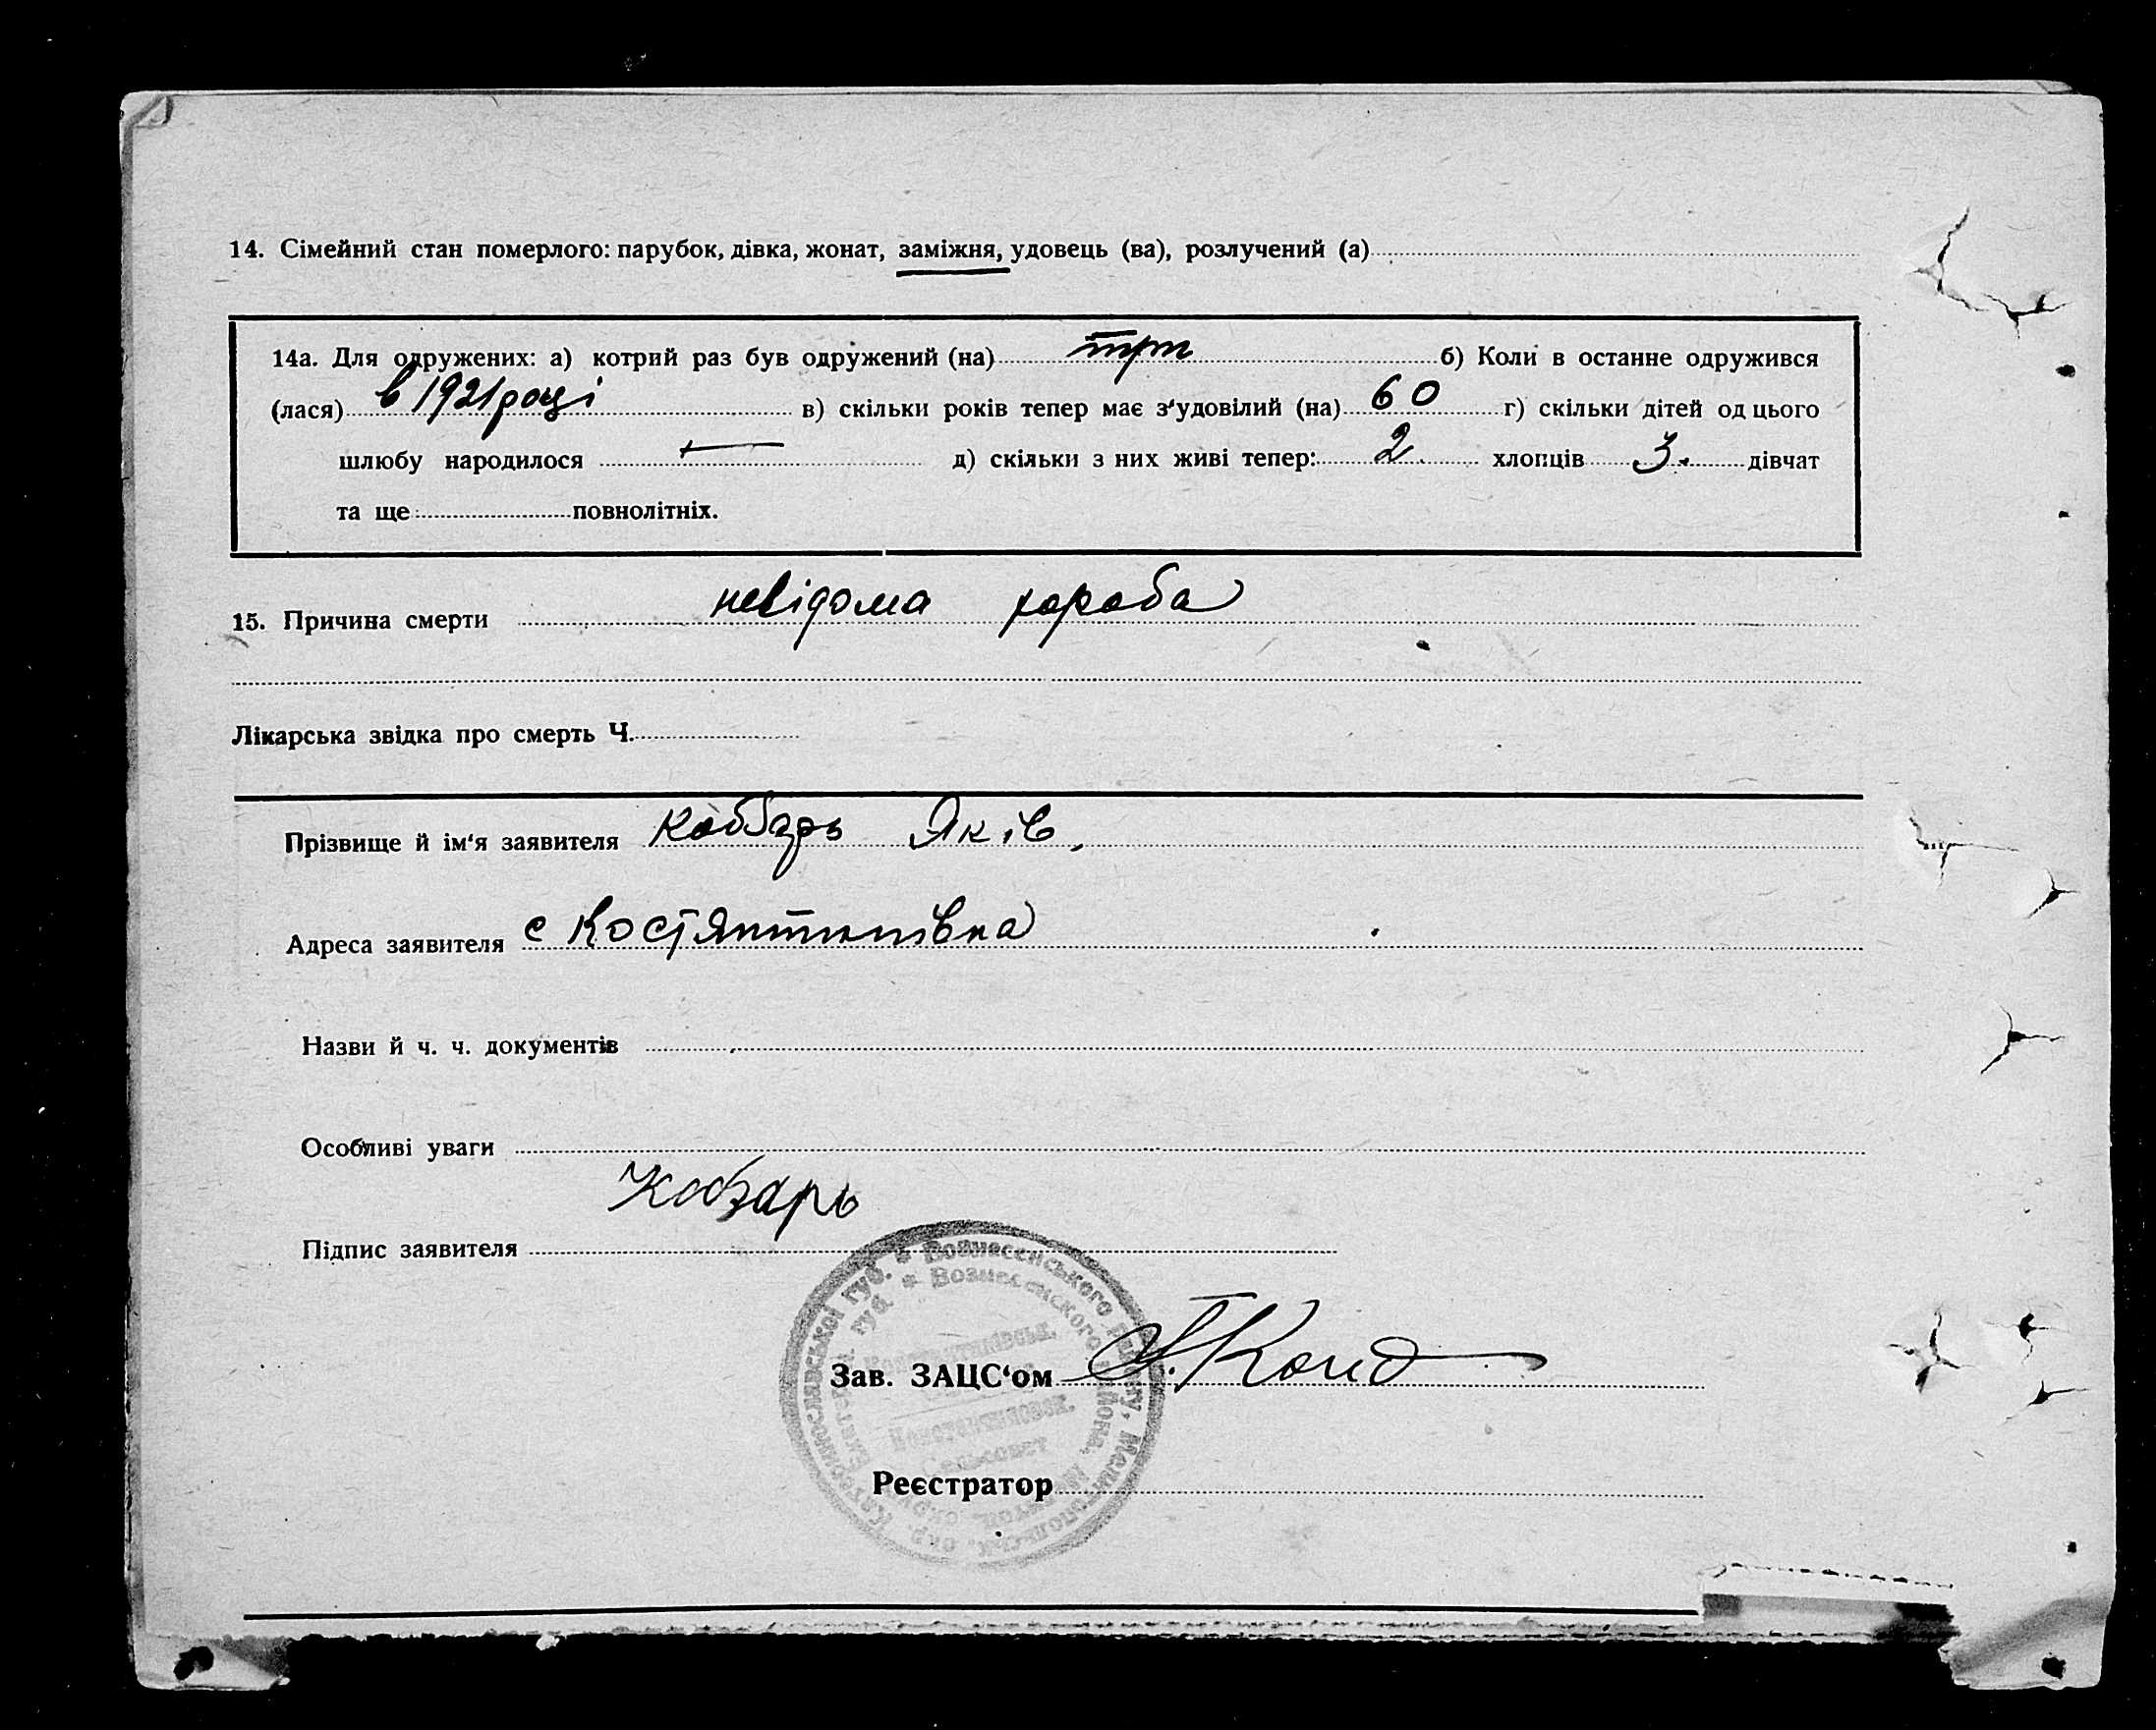 14. Сімейний стан померлого: парубок, дівка, жонат, заміжня, удовець (ва), розлучений (а)
14а. Для одружених: а) котрий раз був одружений (на) б) Коли в останне одружився
(лася) в 1921 році в) скільки років тепер має з‘удовілий (на) 60 г) скільки дітей од цього
шлюбу народилося — д) скільки з них живі тепер: 2. хлопців 3. дівчат
та ще повнолітніх.
15. Причина смерти невідома хороба
Лікарська звідка про смерть Ч.
Прізвище й ім‘я заявителя Кобзарь Яків,
Адреса заявителя с Костянтинівка
Назви й ч. ч. документів
Особливі уваги
Кобзарь
Підпис заявителя
Катеринославської губ. * Вознесенського району, Мелитопольск. окр.
губ. * Вознесенского района,
Зав. ЗАЦС‘ом
Сельсовет
Реєстратор